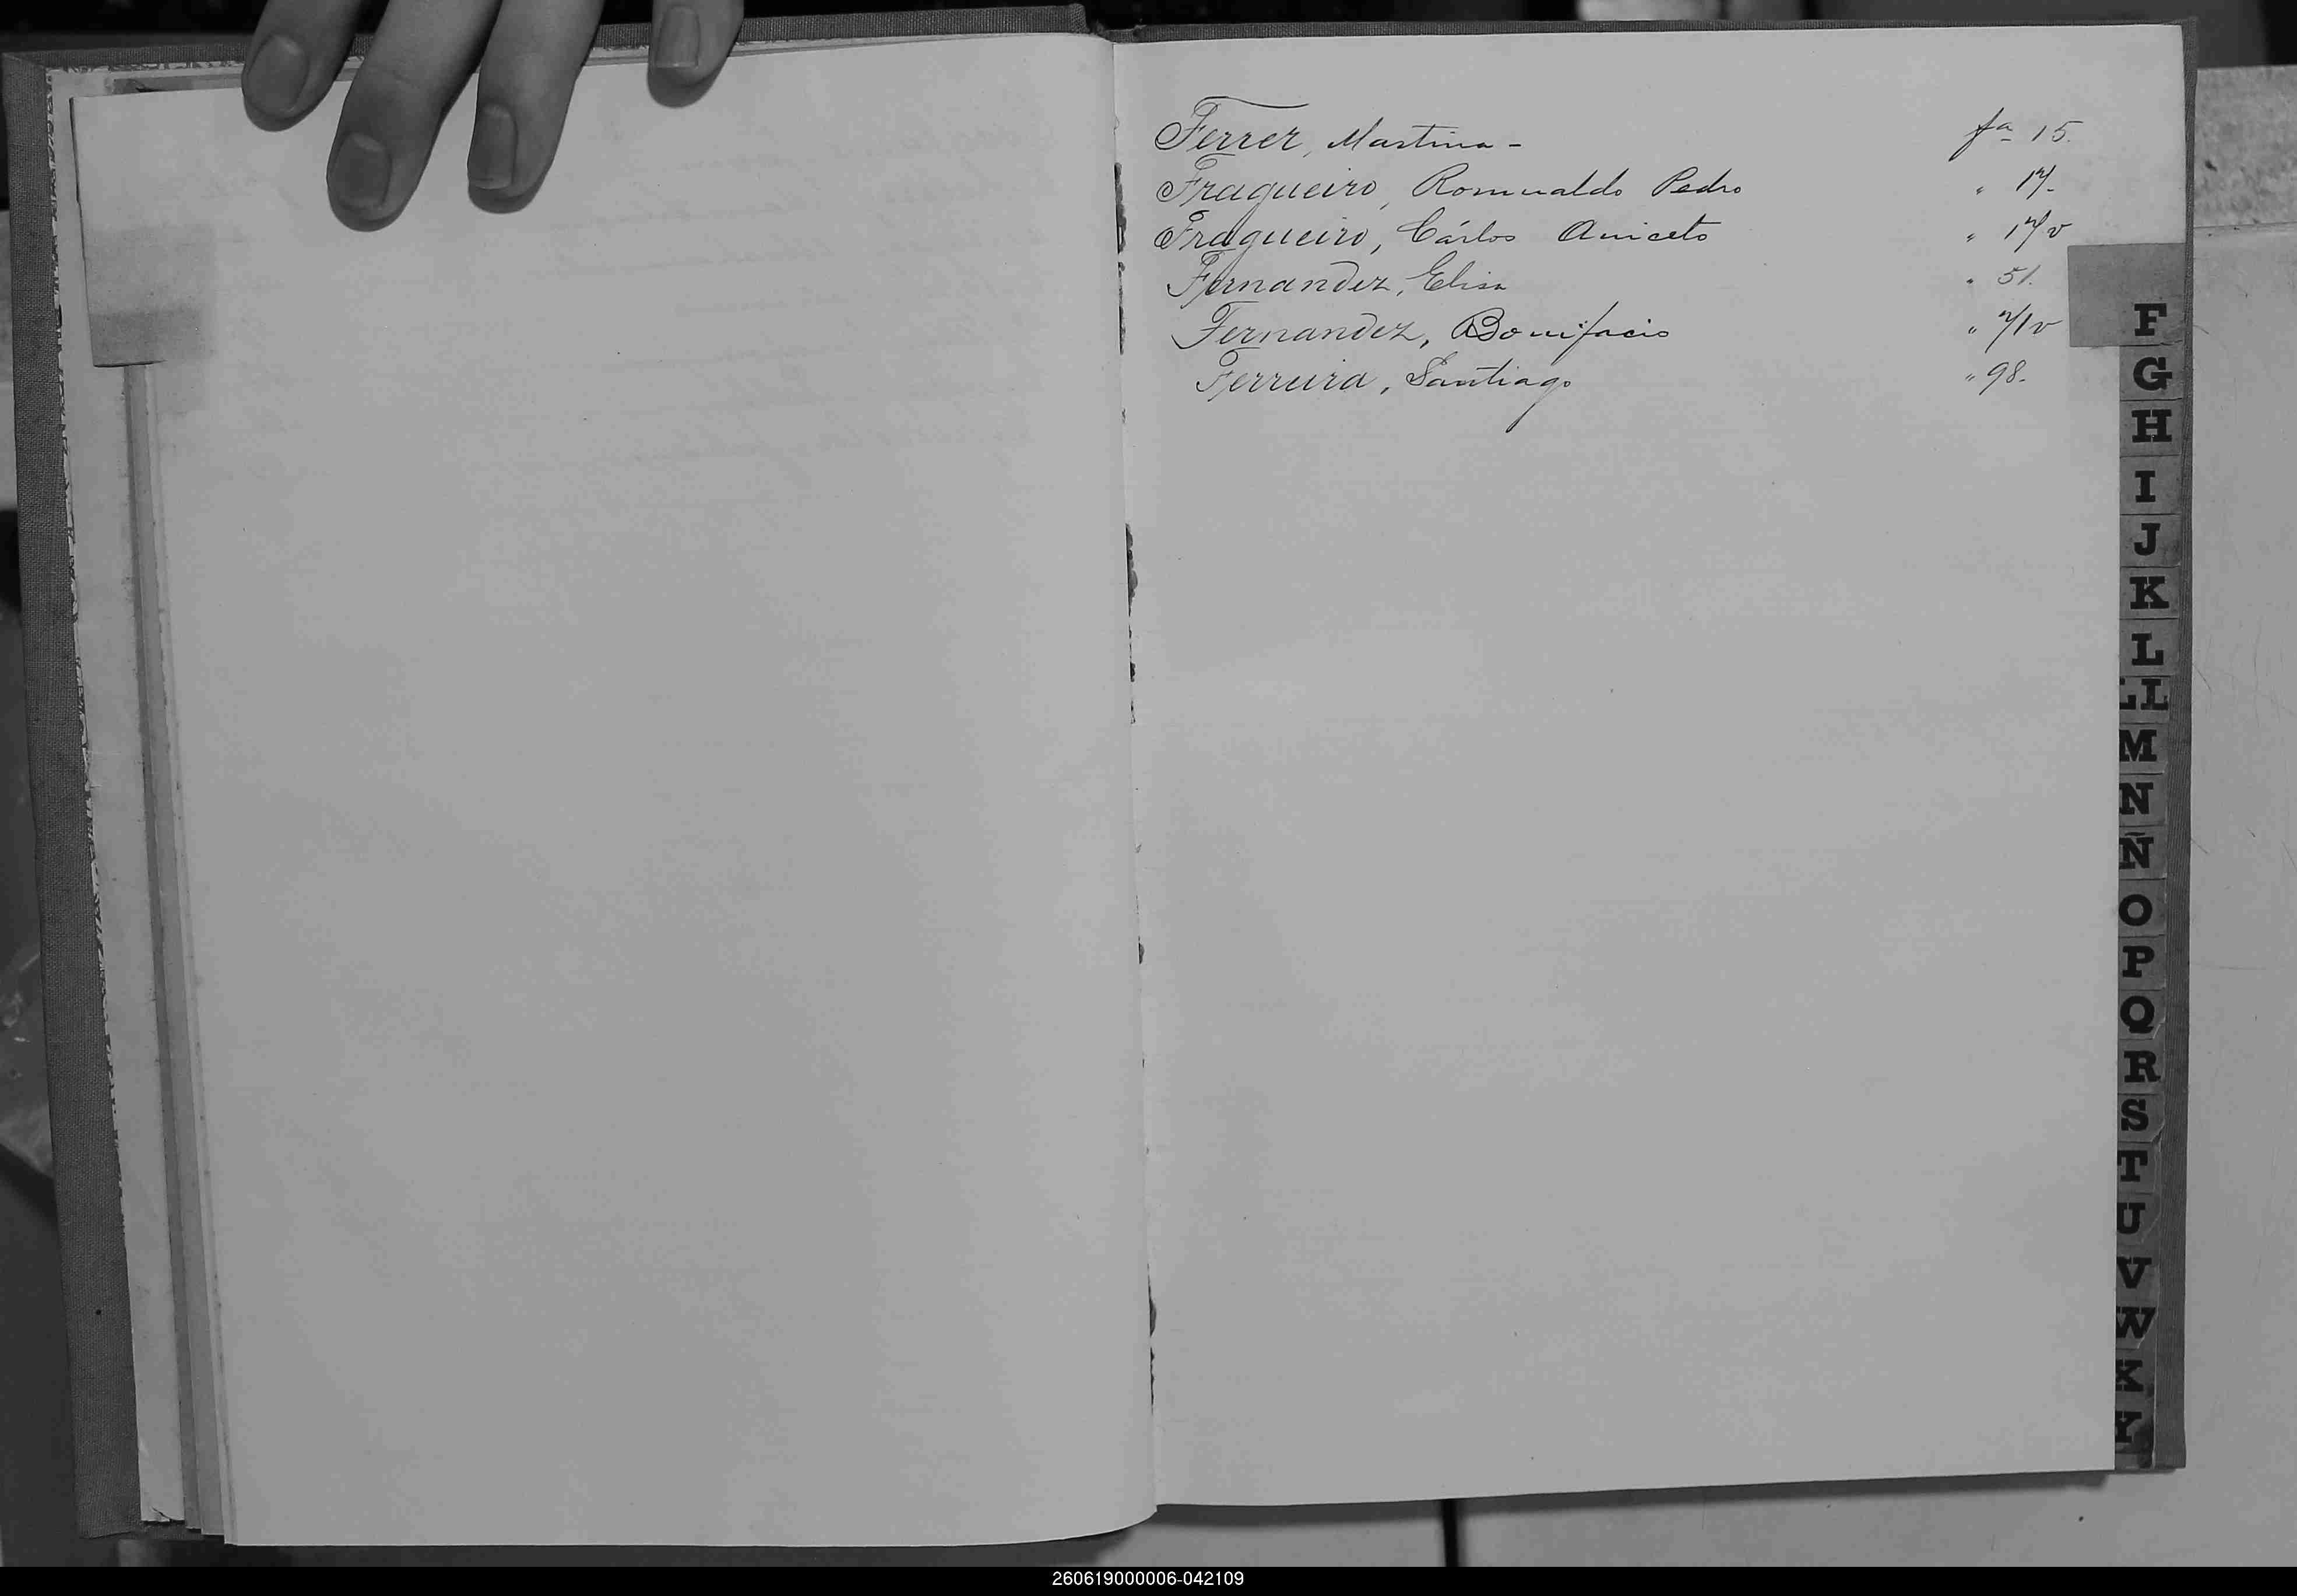 Ferrer, Martina - fa 15.
Fragueiro, Romualdo Pedro " 17.
Fragueiro, Cárlos Aniceto " 17v
Fernandez, Elisa " 51.
Fernandez, Bonifacio " 71v
Ferreira, Santiago " 98.
F
G
H
I
J
K
L
LL
M
N
Ñ
O
P
Q
R
S
T
U
V
W
X
Y
260619000006-042109